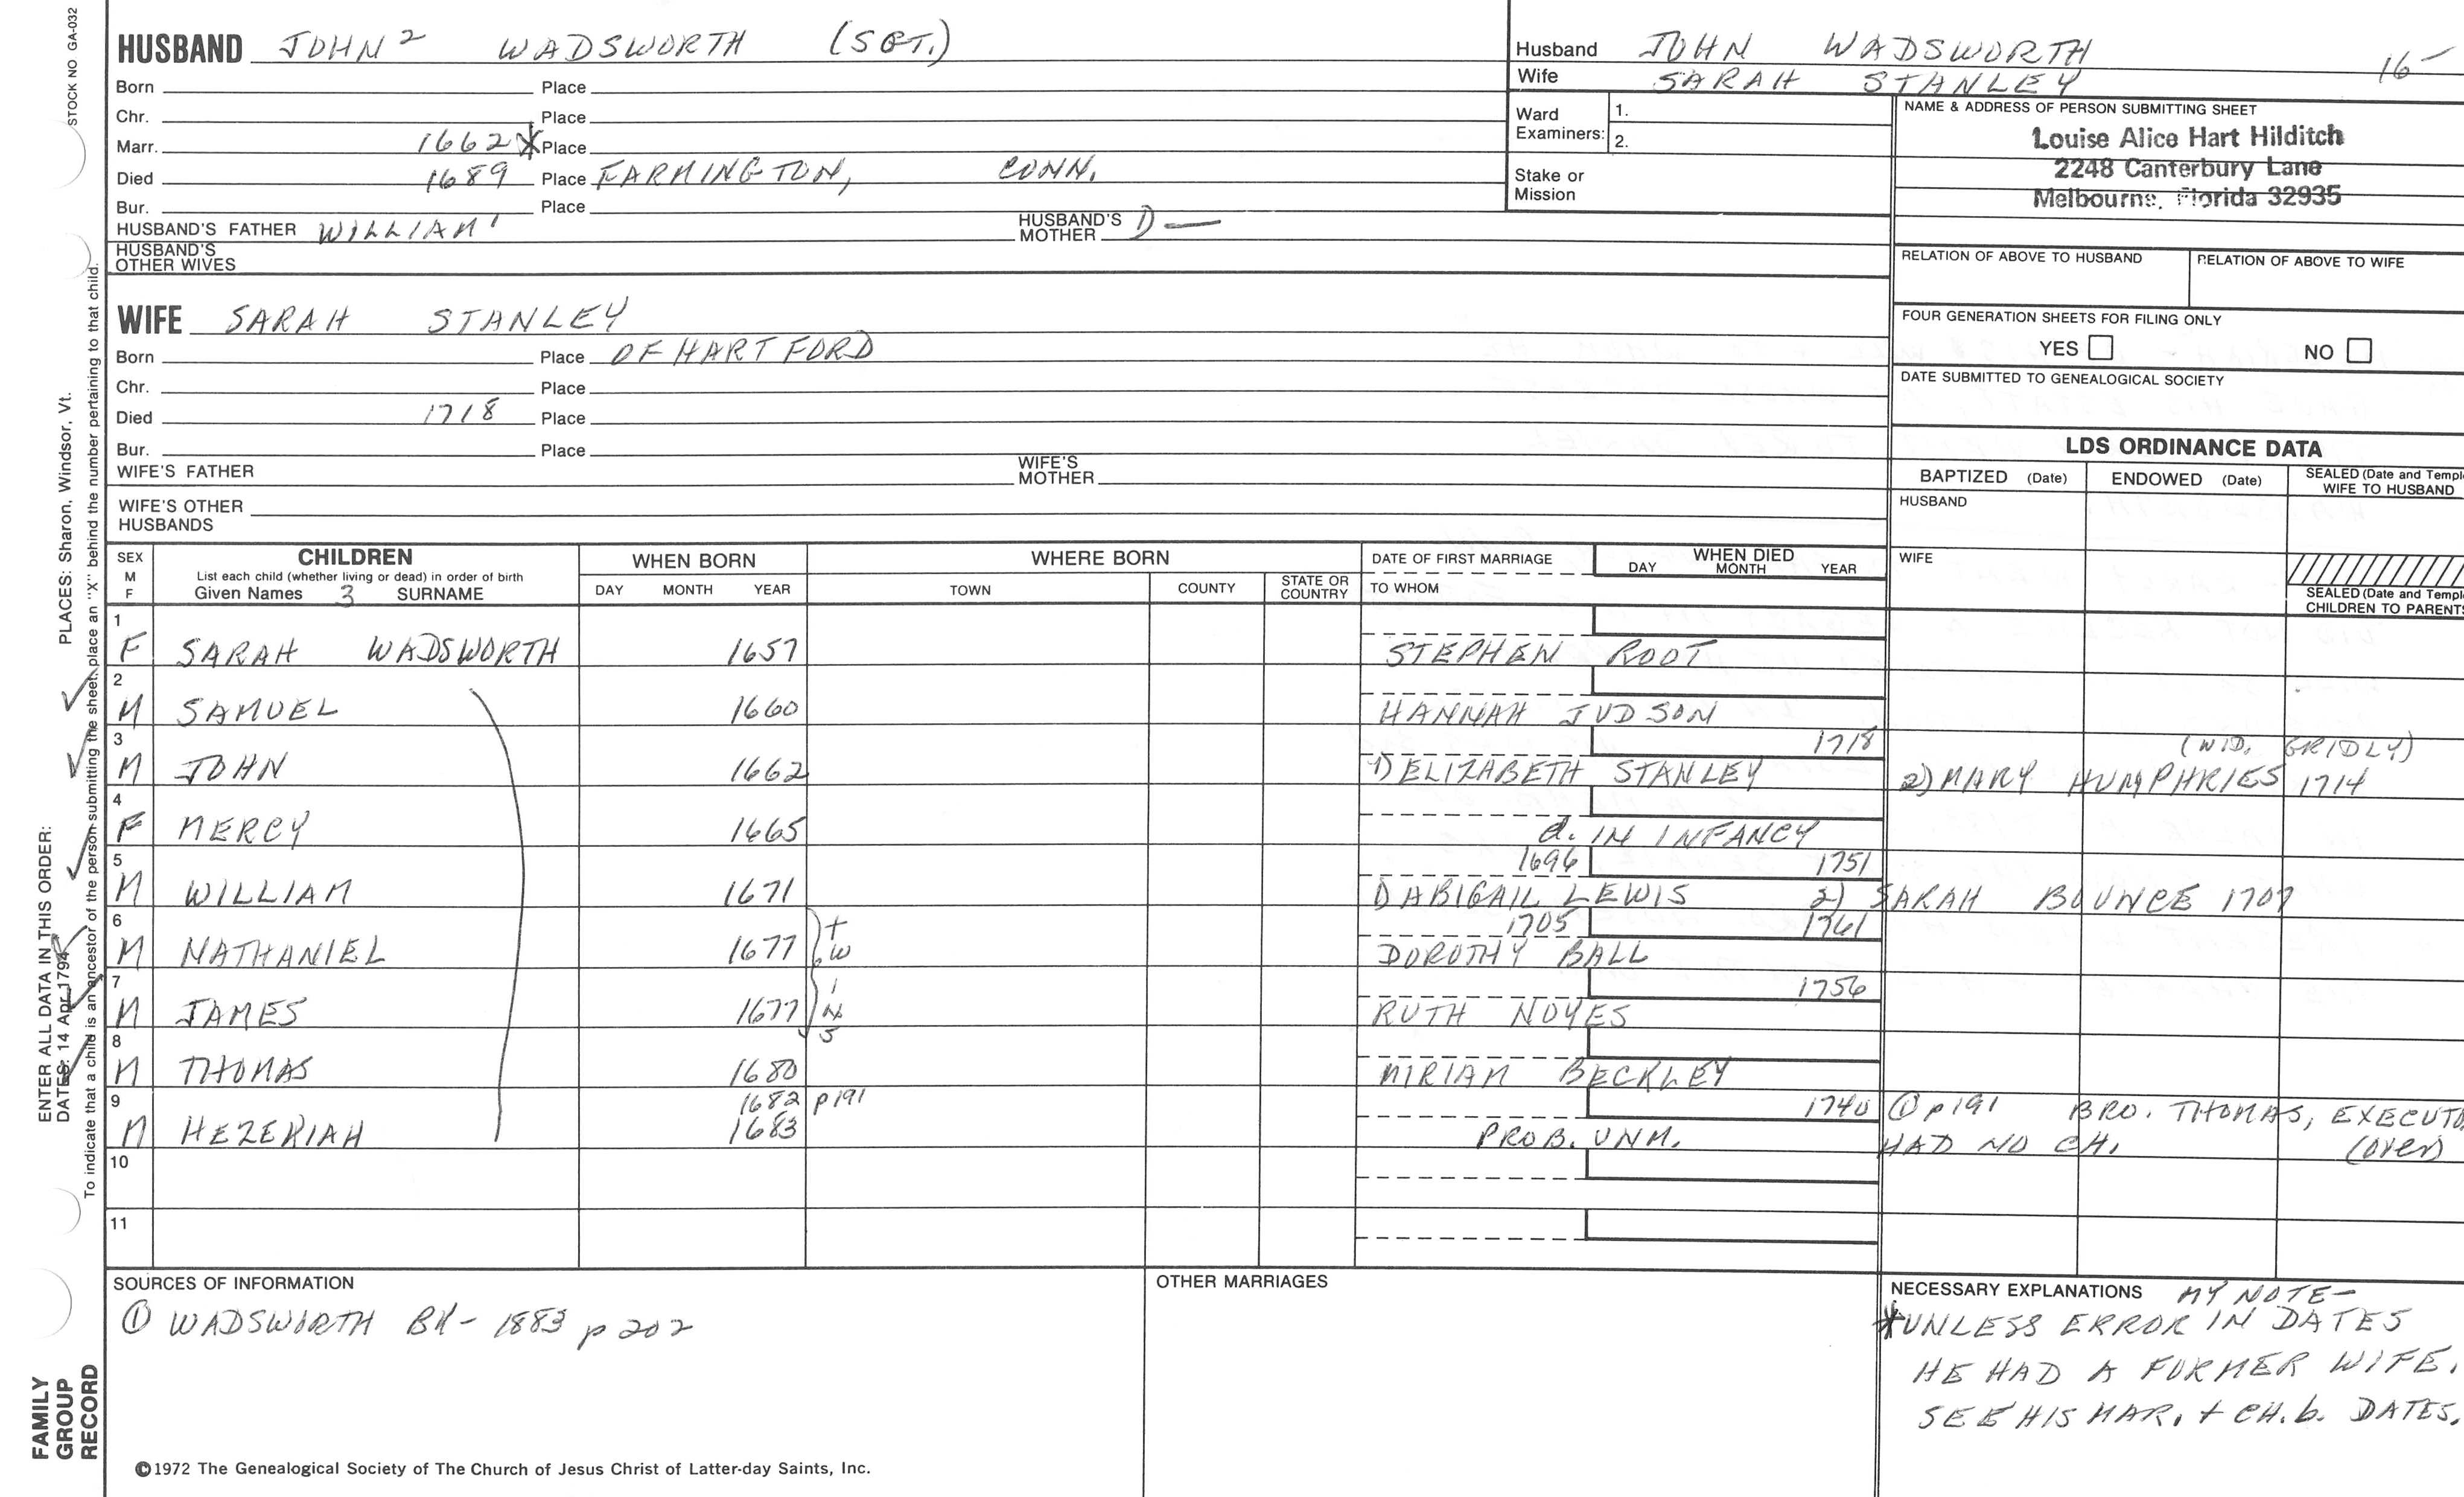 STOCK NO GA-032
HUSBAND JOHN 2 WADSWORTH (SGT.)
Born Place
Chr. Place
Marr. 1662* Place
Died 1689 Place FARMINGTON, CONN.
Bur. Place
HUSBAND'S FATHER WILLIAM 1 HUSBAND'S MOTHER D—
HUSBAND'S OTHER WIVES
Husband JOHN WADSWORTH 16-
Wife SARAH STANLEY
Ward Examiners: 1.
2.
Stake or Mission
NAME & ADDRESS OF PERSON SUBMITTING SHEET
Louise Alice Hart Hilditch
2248 Canterbury Lane
Melbourne, Florida 32935
RELATION OF ABOVE TO HUSBAND RELATION OF ABOVE TO WIFE
FOUR GENERATION SHEETS FOR FILING ONLY
YES NO
DATE SUBMITTED TO GENEALOGICAL SOCIETY
WIFE SARAH STANLEY
Born Place OF HARTFORD
Chr. Place
Died 1718 Place
Bur. Place
WIFE'S FATHER WIFE'S MOTHER
WIFE'S OTHER HUSBANDS
LDS ORDINANCE DATA
BAPTIZED (Date) ENDOWED (Date) SEALED (Date and Templ
WIFE TO HUSBAND
HUSBAND
WIFE
SEALED (Date and Templ
CHILDREN TO PARENTS
SEX M F CHILDREN WHEN BORN WHERE BORN DATE OF FIRST MARRIAGE WHEN DIED
List each child (whether living or dead) in order of birth
Given Names 3 SURNAME DAY MONTH YEAR TOWN COUNTY STATE OR COUNTRY TO WHOM DAY MONTH YEAR
1
F SARAH WADSWORTH 1657 STEPHEN ROOT
2
M SAMUEL 1660 HANNAH JUDSON
3 1718 (WID. GRIDLY)
M JOHN 1662 1) ELIZABETH STANLEY 2) MARY HUMPHRIES 1714
4
F MERCY 1665 d. IN INFANCY
5 1696 1751
M WILLIAM 1671 1) ABIGAIL LEWIS 2) SARAH BOUNCE 1707
6 1705 1761
M NATHANIEL 1677 DOROTHY BALL
twins
7 1756
M JAMES 1677 RUTH NOYES
8
M THOMAS 1680 MIRIAM BECKLEY
9 1682 p191 1740 ① p191 BRO. THOMAS, EXECUTO
M HEZEKIAH 1683 PROB. UNM. HAD NO CH. (over)
10
11
SOURCES OF INFORMATION
① WADSWORTH BK- 1883 p 202
OTHER MARRIAGES
NECESSARY EXPLANATIONS MY NOTE-
*UNLESS ERROR IN DATES
HE HAD A FORMER WIFE.
SEE HIS MAR. + CH. b. DATES.
©1972 The Genealogical Society of The Church of Jesus Christ of Latter-day Saints, Inc.
ENTER ALL DATA IN THIS ORDER:
PLACES: Sharon, Windsor, Vt.
DATES: 14 Apr 1794
To indicate that a child is an ancestor of the person submitting the sheet, place an "X" behind the number pertaining to that child.
FAMILY
GROUP
RECORD